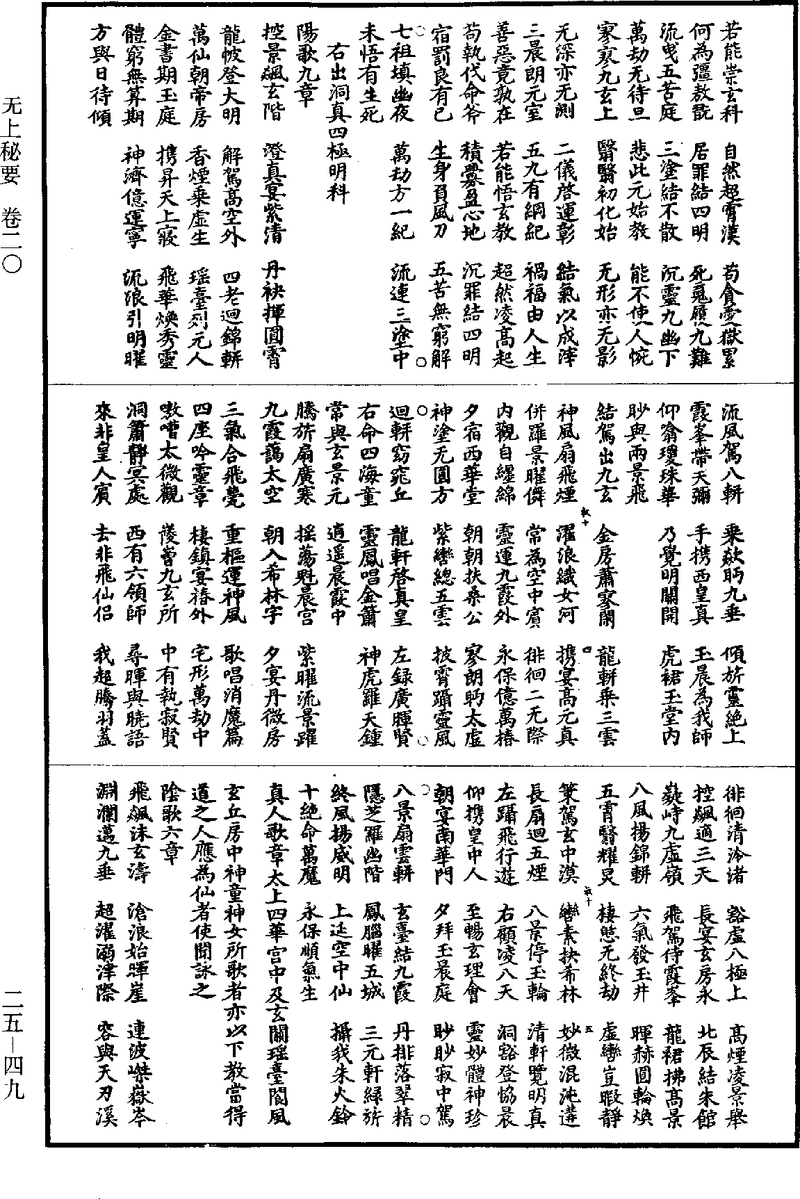 若能崇玄科　自然超霄漢　苟貪雲獄累
何為彊教翫　居罪結四明　死魂履九難
流曳五苦庭　三塗結不散　沉靈九幽下
萬劫无待旦　悲此元始教　能不使人惋
寥寥九玄上　翳翳初化始　无形亦无影
无深亦无測　二儀啓運彰　結氣以成滓
三晨朗元室　五九有綱紀　禍福由人生
善惡竟孰在　若能悟玄教　超然凌高起
苟執伐命斧　積釁盈心地　沉罪結四明
宿罰良有已　生身負風刀　五苦無窮解
七祖填幽夜　萬劫方一紀　流連三塗中
未悟有生死
右出洞真四極明科
陽歌九章
控景飆玄階　澄真宴紫清　丹袂揮圓霄
龍帔登大明　解駕高空外　四老迴錦軿
萬仙朝帝房　香煙乘虛生　瑤臺列元人
金書期玉庭　携昇天上寢　飛華煥秀靈
體窮無算期　神濟億運寧　流浪引明曜
方與日待傾
流風駕八軿　乘欻眄九垂　傾旂靈絕上
霞峯帶天彌　手携西皇真　玉晨為我師
仰翕瓊珠華　乃覺明關開　虎裙玉堂內
眇與兩景飛
結駕出九玄　金房蕭寥閒　龍軿乘三雲
神風扇飛煙　濯浪織女河　携宴高元真
併羅景曜儔　常為空中賓　徘徊二无際
內觀自纏綿　靈運九霞外　永保億萬椿
夕宿西華堂　朝朝扶桑公　寥朗眄太虛
神塗无圓方　紫巒總五雲　披霄躡靈風
迴軿窈窕丘　龍軒啓真皇　左録廣暉賢
右命四海童　靈鳳唱金簫　神虎羅天鍾
常與玄景元　逍遥晨霞中
騰旂扇廣寒　摇蕩魁晨宫　紫曜流景躍
九霞藹太空　朝入希林宇　夕宴丹微房
三氣合飛甍　重樞運神風　歌唱消魔篇
四座吟靈章　棲鎮宴椿外　宅形萬劫中
嗷嘈太微觀　蔭鬱九玄所　中有執寂賢
洞簫靜冥處　西有六領師　尋暉與曉語
來非皇人賓　去非飛仙侣　我超騰羽蓋
徘徊清泠渚　豁虛八極上　高煙凌景舉
控飆適三天　長宴玄房永　北辰結朱館
嶷峙九虛嶺　飛駕侍霞峯　龍裙拂高景
八風揚錦軿　六氣發玉井　暉赫圓輪煥
五霄翳耀炅　棲憩无終劫　虛巒豈暇靜
策駕玄中漠　巒素扶希林　妙微混沌遘
長扇迴五煙　八景停玉輪　清軒覽明真
左躡飛行遊　右顧凌八天　洞豁登協晨
仰携皇中人　至暢玄理會　靈妙體神珍
朝宴南華門　夕拜玉晨庭　眇眇寂中駕
八景扇雲軿　玄臺結九霞　丹排落翠精
隱芝羅幽階　鳳腦曜五城　三元軒緑旂
終風揚威明　上延空中仙　攝我朱火鈴
十絕命萬魔　永保順氣生
真人歌章太上四華宫中及玄關瑶臺閬風
玄丘房中神童神女所歌者亦以下教當得
道之人應為仙者使聞詠之
陰歌六章
飛飆沫玄濤　滄浪始暉崖　連波嶫嶽岑
淵瀾邁九垂　超濯溺津際　容與天刃溪
无上秘要　卷二〇
二五—四九